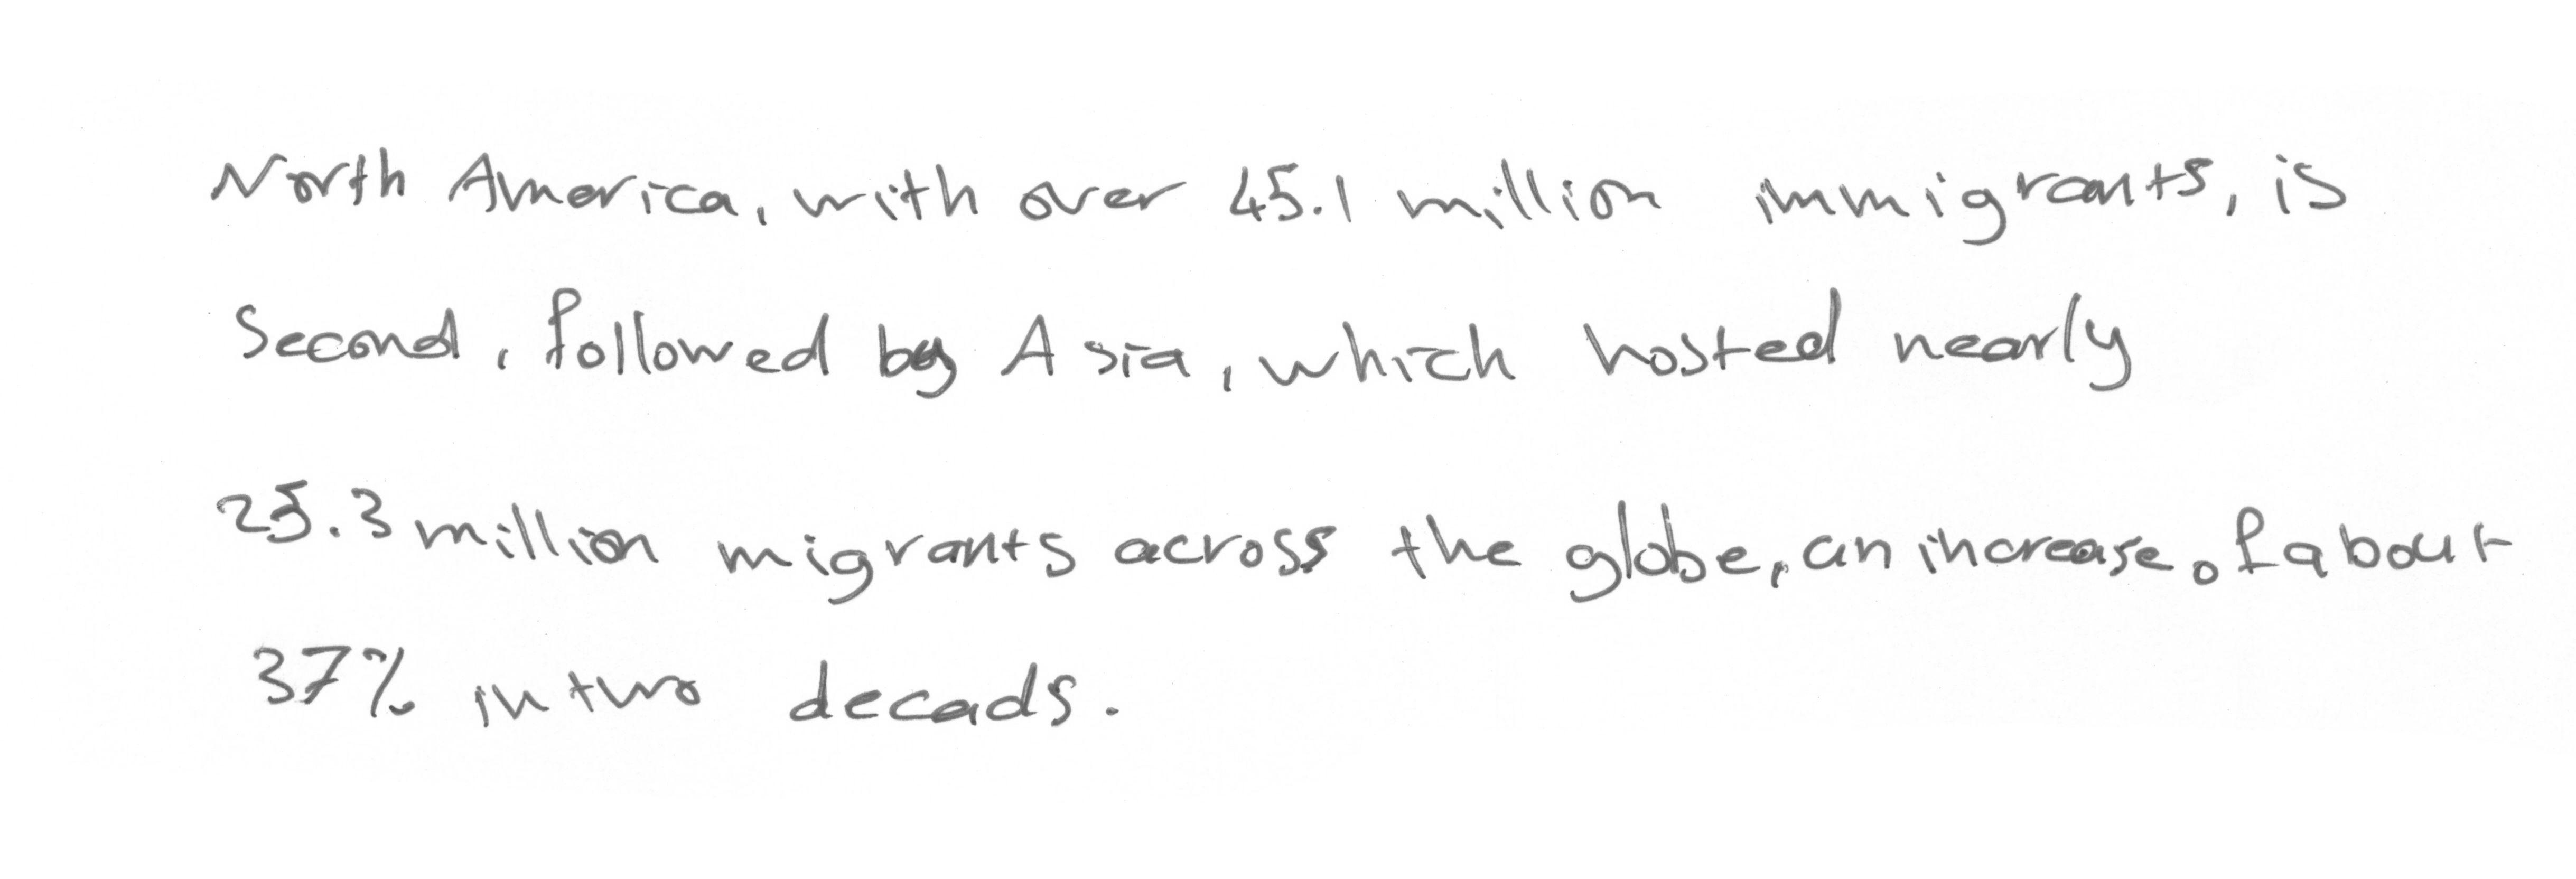 North America, with over 45.1 million immigrants, is
Second, followed by Asia, which hosted nearly
25.3 million migrants across the globe, an increase of about
37% in two decads.